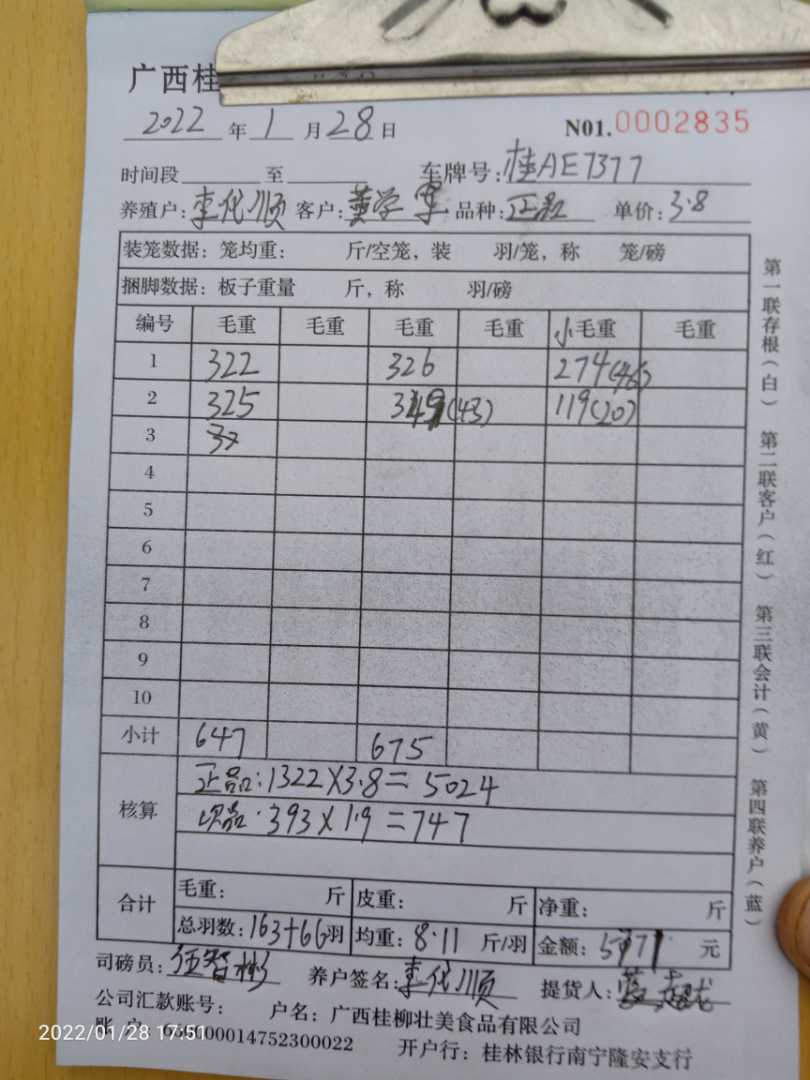 广西桂
2022年1月28日 N01.0002835
时间段 至 车牌号:桂AE7377
养殖户:李代顺 客户:黄学军 品种:正品 单价:3.8
装笼数据:笼均重: 斤/空笼,装 羽/笼,称 笼/磅
捆脚数据:板子重量 斤,称 羽/磅
编号 毛重 毛重 毛重 毛重 小毛重 毛重
1 322 326 274(46)
2 325 349(43) 119(20)
3
4
5
6
7
8
9
10
小计 647 675
核算 正品:1322×3.8=5024
次品:393×1.9=747
合计 毛重: 斤 皮重: 斤 净重: 斤
总羽数:163+66羽 均重:8.11 斤/羽 金额:5771 元
司磅员:伍智彬 养户签名:李代顺 提货人:
公司汇款账号: 户名:广西桂柳壮美食品有限公司
账户 000014752300022 开户行:桂林银行南宁隆安支行
第一联存根(白) 第二联客户(红) 第三联会计(黄) 第四联养户(蓝)
2022/01/28 17:51